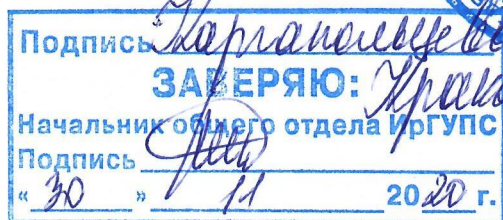 Подпись Каргапольцева
ЗАВЕРЯЮ:
Начальник общего отдела ИрГУПС
Подпись
« 30 » 11 2020 г.